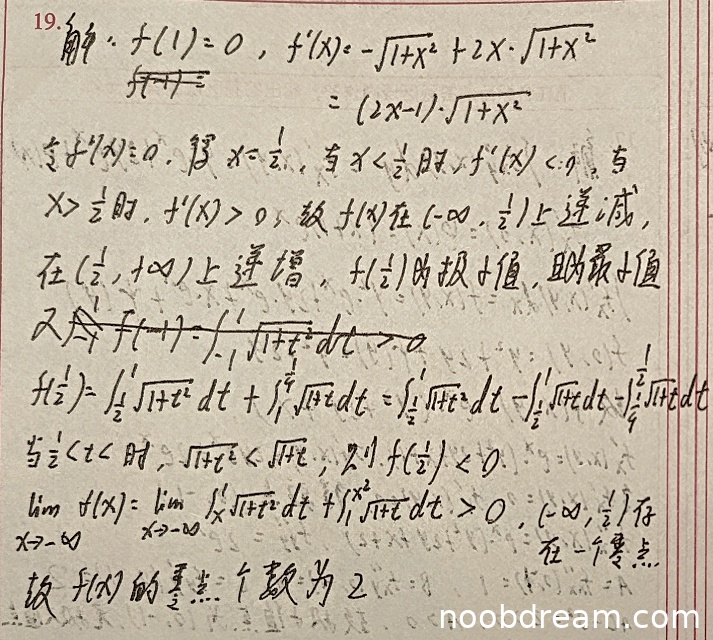 19.
解: f(1)=0, f'(x)=-√(1+x²)+2x·√(1+x²)
=(2x-1)·√(1+x²)
令f'(x)=0, 得x=1/2, 当x<1/2时, f'(x)<0, 当
x>1/2时, f'(x)>0, 故f(x)在(-∞, 1/2)上递减,
在(1/2, +∞)上递增, f(1/2)为极小值, 且为最小值
又
f(1/2)=∫_{1/2}^{1}√(1+t²)dt+∫_{1}^{1/4}√(1+t)dt=∫_{1/2}^{1}√(1+t²)dt-∫_{1/2}^{1}√(1+t)dt-∫_{1/4}^{1/2}√(1+t)dt
当1/2<t<时, √(1+t²)<√(1+t), 则f(1/2)<0.
lim_{x→-∞} f(x)=lim_{x→-∞}∫_{x}^{1}√(1+t²)dt+∫_{1}^{x²}√(1+t)dt>0, (-∞, 1/2)存
在一个零点
故f(x)的零点个数为2
noobdream.com